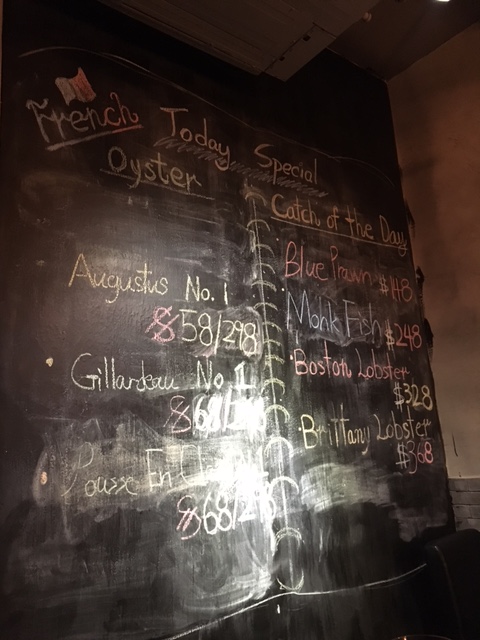 French
Today Special
Oyster
Augustus No. 1
$58/298
Gillardeau No 1
$68/
Pousse En Cl
$68/2
Catch of the Day
Blue Prawn $148
Monk Fish $248
Boston Lobster
$328
Brittany Lobster
$368